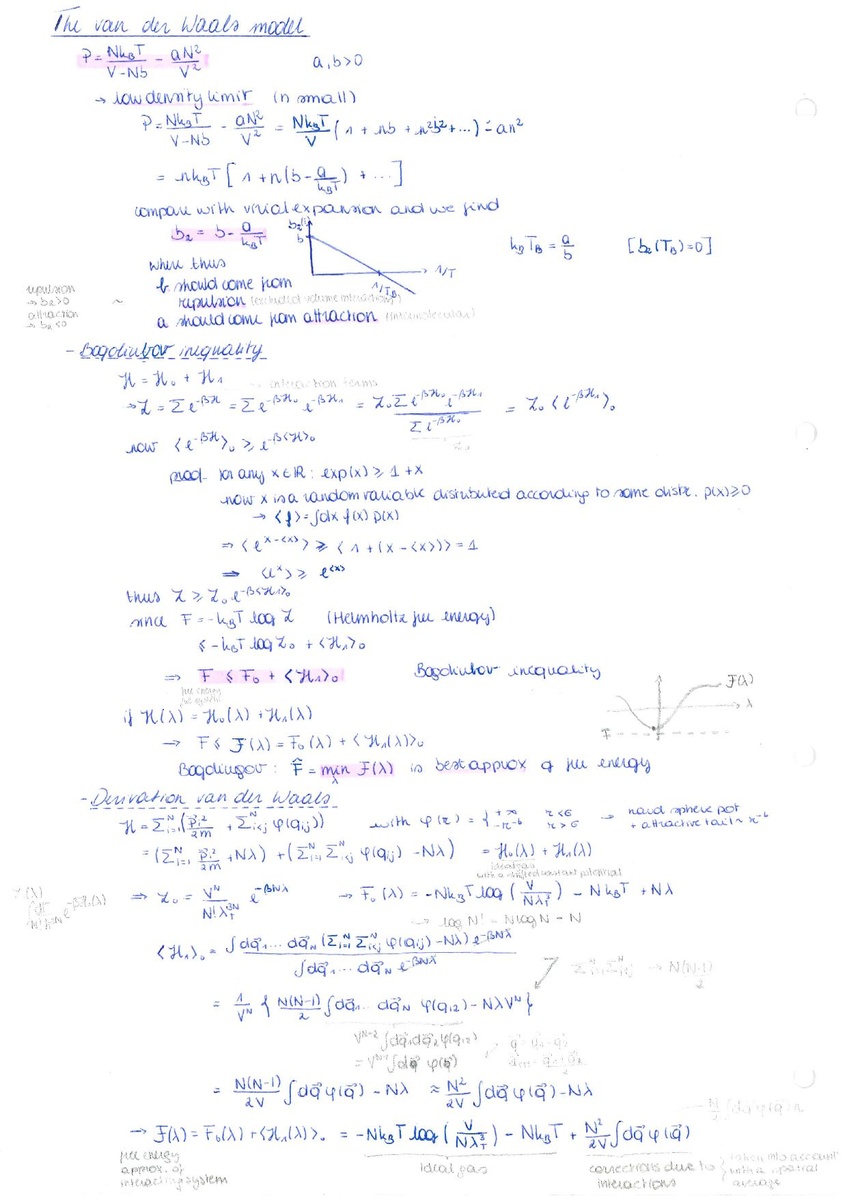 The van der Waals model
P = Nk_BT/(V-Nb) - aN²/V²    a,b>0
→ low density limit (n small)
P = Nk_BT/(V-Nb) - aN²/V² = Nk_BT/V (1 + nb + n²b² + ...) - an²
= nk_BT [1 + n(b - a/k_BT) + ...]
compare with virial expansion and we find
b₂ = b - a/k_BT    b₂ b 1/T_B 1/T    k_B T_B = a/b    [b₂(T_B)=0]
where thus
b should come from
repulsion (excluded volume interactions)
a should come from attraction (intermolecular)
repulsion
→ b₂>0 ~
attraction
→ b₂<0
- Bogoliubov inequality
H = H₀ + H₁ → interaction terms
⇒ Z = Σe^{-βH} = Σe^{-βH₀} e^{-βH₁} = Z₀ Σe^{-βH₀} e^{-βH₁} / Σe^{-βH₀} = Z₀ ⟨e^{-βH₁}⟩₀
Z₀
now ⟨e^{-βH}⟩₀ ≥ e^{-β⟨H⟩₀}
proof. for any x∈ℝ: exp(x) ≥ 1 + x
now x is a random variable distributed according to some distr. p(x) ≥ 0
→ ⟨f⟩ = ∫dx f(x) p(x)
⇒ ⟨e^{x-⟨x⟩}⟩ ≥ ⟨1 + (x - ⟨x⟩)⟩ = 1
⇒ ⟨e^x⟩ ≥ e^{⟨x⟩}
thus Z ≥ Z₀ e^{-β⟨H₁⟩₀}
since F = -k_BT log Z (Helmholtz free energy)
≤ -k_BT log Z₀ + ⟨H₁⟩₀
⇒ F ≤ F₀ + ⟨H₁⟩₀    Bogoliubov inequality
free energy
F(λ) λ F
if H(λ) = H₀(λ) + H₁(λ)
→ F ≤ F(λ) = F₀(λ) + ⟨H₁(λ)⟩₀
F̂ = min_λ F(λ) is best approx of free energy
- Derivation van der Waals
H = Σ_{i=1}^N (p_i²/2m + Σ_{i<j}^N φ(q_ij)) with φ(r) = { +∞ r<σ
-r^{-6} r>σ → hard sphere pot
+ attractive tail ~ r^{-6}
= (Σ_{i=1}^N p_i²/2m + Nλ) + (Σ_{i=1}^N Σ_{i<j}^N φ(q_ij) - Nλ) = H₀(λ) + H₁(λ)
ideal gas
with a shifted constant potential
⇒ Z₀ = V^N / N!λ_T^{3N} e^{-βNλ} → F₀(λ) = -Nk_BT log(V/Nλ_T³) - Nk_BT + Nλ
→ log N! ~ N log N - N
⟨H₁⟩₀ = ∫dq₁ ... dq_N (Σ_{i=1}^N Σ_{i<j}^N φ(q_ij) - Nλ) e^{-βNλ} / ∫dq₁ ... dq_N e^{-βNλ}
Σ_{i=1}^N Σ_{i<j}^N → N(N-1)/2
= 1/V^N { N(N-1)/2 ∫dq₁ ... dq_N φ(q₁₂) - NλV^N }
V^{N-2} ∫dq₁dq₂ φ(q₁₂)
= V^{N-1} ∫dq φ(q)
= N(N-1)/2V ∫dq φ(q) - Nλ ≈ N²/2V ∫dq φ(q) - Nλ
→ F(λ) = F₀(λ) + ⟨H₁(λ)⟩₀ = -Nk_BT log(V/Nλ_T³) - Nk_BT + N²/2V ∫dq φ(q)
free energy
approx. of
interacting system
ideal gas
corrections due to
interactions
{ taken into account
with a spatial
average